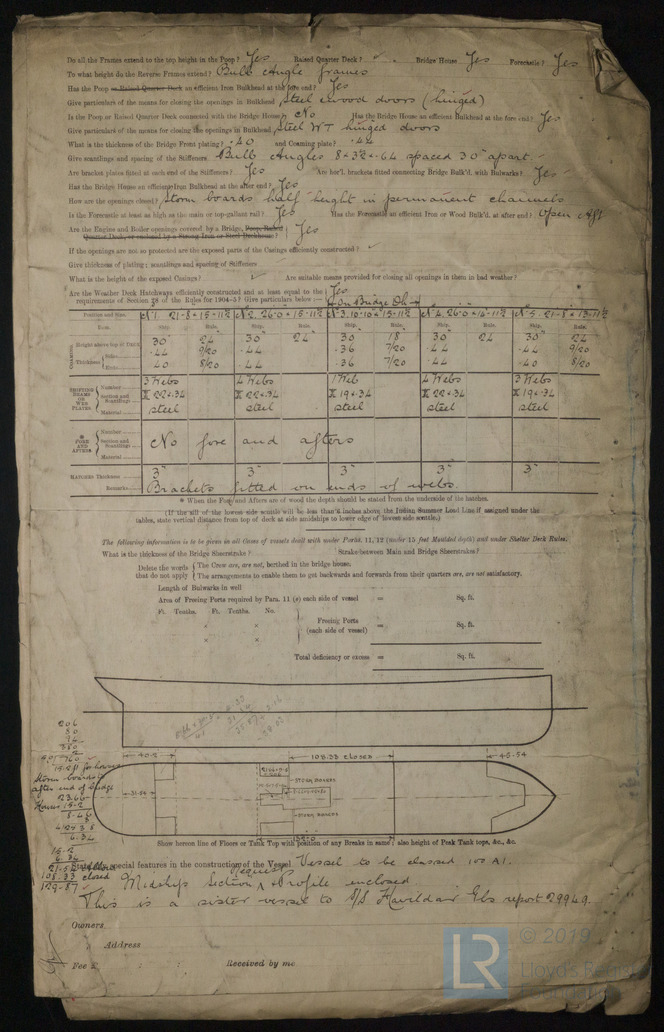 Do all the Frames extend to the top height in the Poop? Yes Raised Quarter Deck? ✓ Bridge House Yes Forecastle? Yes
To what height do the Reverse Frames extend? Bulb Angle frames
Has the Poop or Raised Quarter Deck an efficient Iron Bulkhead at the fore end? Yes
Give particulars of the means for closing the openings in Bulkhead Steel wood doors (hinged)
Is the Poop or Raised Quarter Deck connected with the Bridge House? No Has the Bridge House an efficient Bulkhead at the fore end? Yes
Give particulars of the means for closing the openings in Bulkhead Steel WT hinged doors
What is the thickness of the Bridge Front plating? .40 and Coaming plate? .44
Give scantlings and spacing of the Stiffeners Bulb Angles 8 × 3½ × .64 spaced 30" apart.
Are bracket plates fitted at each end of the Stiffeners? Yes Are hor'l. brackets fitted connecting Bridge Bulk'd. with Bulwarks? Yes
Has the Bridge House an efficient Iron Bulkhead at the after end? Yes
How are the openings closed? Storm boards half height in permanent channels
Is the Forecastle at least as high as the main or top-gallant rail? Yes Has the Forecastle an efficient Iron or Wood Bulk'd. at after end? Open Aft
Are the Engine and Boiler openings covered by a Bridge, Poop, Raised
Quarter Deck, or enclosed by a Strong Iron or Steel Deckhouse? } Yes
If the openings are not so protected are the exposed parts of the Casings efficiently constructed? ✓
Give thickness of plating; scantlings and spacing of Stiffeners
What is the height of the exposed Casings? ✓ Are suitable means provided for closing all openings in them in bad weather?
Are the Weather Deck Hatchways efficiently constructed and at least equal to the
requirements of Section 28 of the Rules for 1904-5? Give particulars below :— } Yes
On Bridge Dk
Position and Size. No 1. 21-8 × 15-11½ No 2. 26-0 × 15-11½ No 3. 10-10 × 15-11½ No 4. 26-0 × 14-11½ No 5. 21-8 × 13-11½
Item. Ship. Rule. Ship. Rule. Ship. Rule. Ship. Rule. Ship. Rule.
COAMING Height above top of DECK 30" 24 30" 24" 30" 18 30" 24 30" 24
Thickness { Sides .44 9/20 .44 .36 7/20 .44 .44 9/20
Ends .40 8/20 .44 .36 7/20 .44 .40 8/20
SHIFTING BEAMS OR WEB PLATES. Number 3 Webs 4 Webs 1 Web 4 Webs 3 Webs
Section and Scantlings 22 × .34 22 × .34 19 × .34 22 × .34 19 × .34
Material steel steel steel steel steel
* FORE AND AFTERS Number
Section and Scantlings No fore and afters
Material
HATCHES Thickness 3" 3" 3" 3" 3"
Remarks Brackets fitted on ends of webs.
* When the Fore and Afters are of wood the depth should be stated from the underside of the hatches.
(If the sill of the lowest side scuttle will be less than 6 inches above the Indian Summer Load Line if assigned under the
tables, state vertical distance from top of deck at side amidships to lower edge of lowest side scuttle.)
The following information is to be given in all Cases of vessels dealt with under Paras. 11, 12 (under 15 feet Moulded depth) and under Shelter Deck Rules.
What is the thickness of the Bridge Sheerstrake? Strake between Main and Bridge Sheerstrakes?
Delete the words
that do not apply { The Crew are, are not, berthed in the bridge house.
The arrangements to enable them to get backwards and forwards from their quarters are, are not satisfactory.
Length of Bulwarks in well
Area of Freeing Ports required by Para. 11 (e) each side of vessel = Sq. ft.
Ft. Tenths. Ft. Tenths. No.
× ×
× ×
Freeing Ports
(each side of vessel) } = Sq. ft.
Total deficiency or excess = Sq. ft.
206
50
94
40-5 108.33 closed 45-54
31-54
Storm boards
Storm boards
after end of bridge
Show hereon line of Floors or Tank Top with position of any Breaks in same; also height of Peak Tank tops, &c., &c.
15-2
6.34
21.54
108.33 closed
129-87
State any special features in the construction of the Vessel Vessel to be classed 100 A1.
Midship Section & Profile enclosed
This is a sister vessel to S/S Havildar Gls report 29949.
Owners
Address
Fee £ : : Received by me
LR © 2019
Lloyd's Register
Foundation